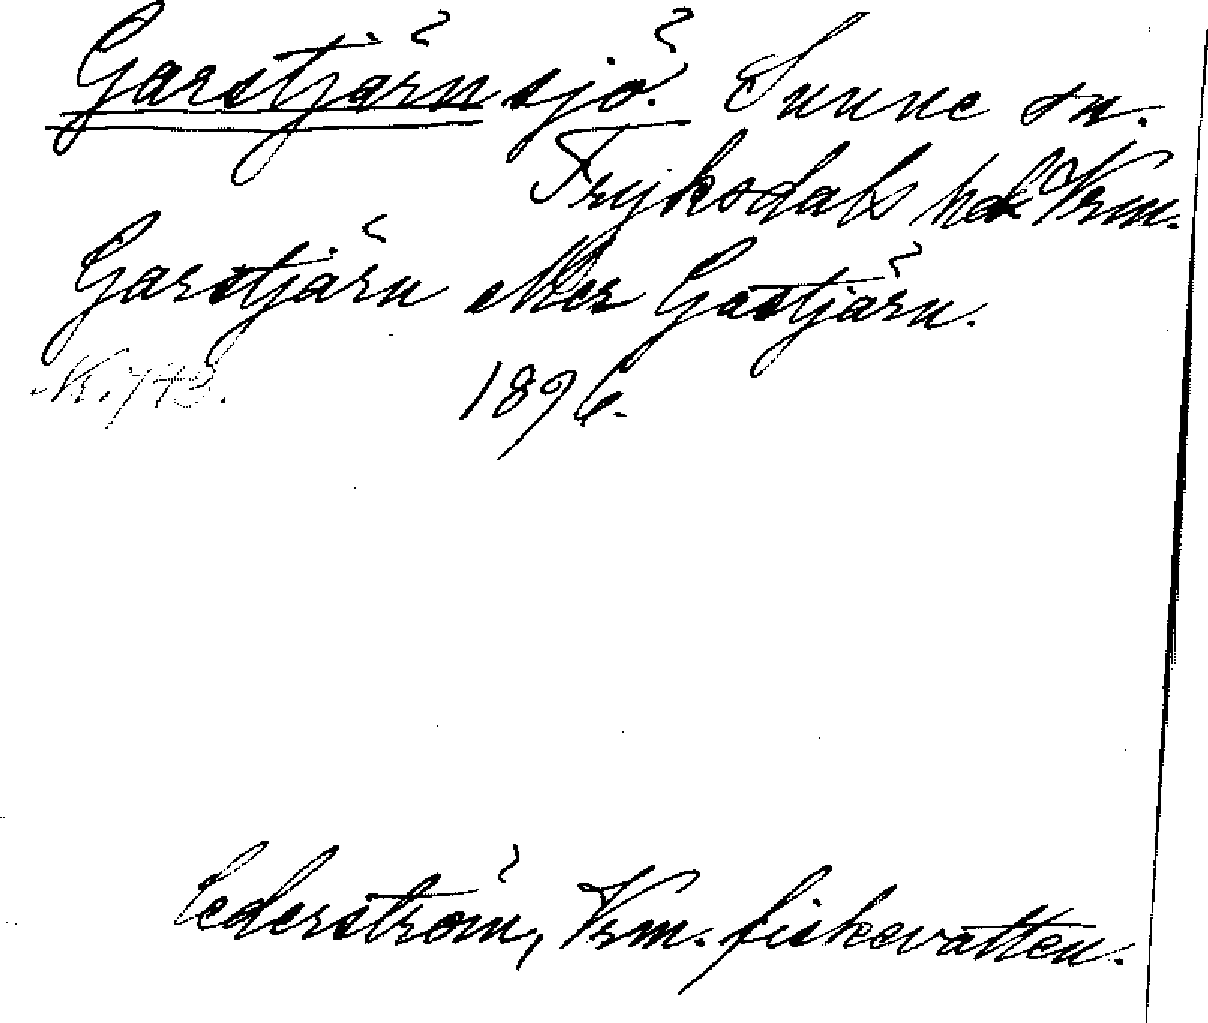 Garstjärn sjö. Sunne sn.
Fryksdals hd. Vrm.
Garstjärn eller Gastjärn.
N. 743. 1896.
Cederström, Vrm. fiskevatten.